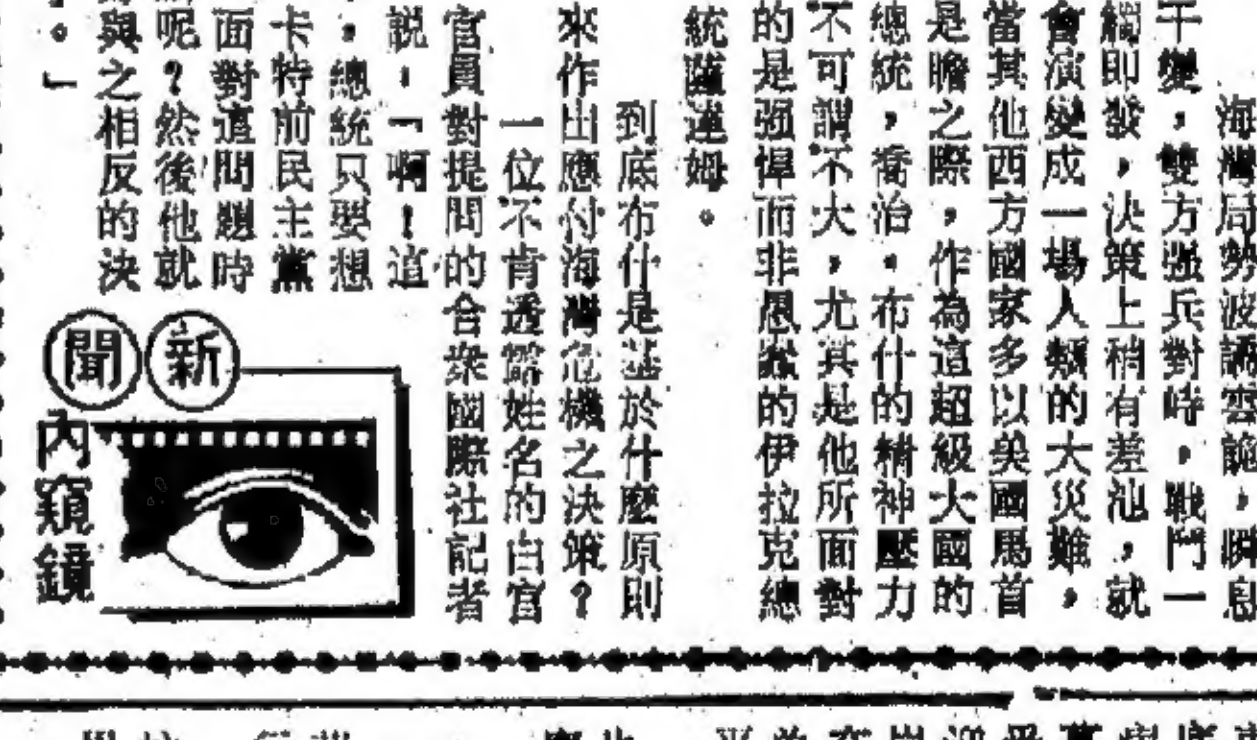 海灣局勢波譎雲詭，瞬息
千變，雙方强兵對峙，戰鬥一
觸即發，決策上稍有差池，就
會演變成一場人類的大災難，
當其他西方國家多以美國馬首
是瞻之際，作為這超級大國的
總統，喬治．布什的精神壓力
不可謂不大，尤其是他所面對
的是强悍而非愚蠢的伊拉克總
統薩達姆。
到底布什是基於什麼原則
來作出應付海灣危機之決策？
一位不肯透露姓名的白宮
官員對提問的合衆國際社記者
説，「啊！這
，總統只要想
卡特前民主黨
面對這問題時
呢？然後他就
與之相反的決
。」
新聞
內窺鏡